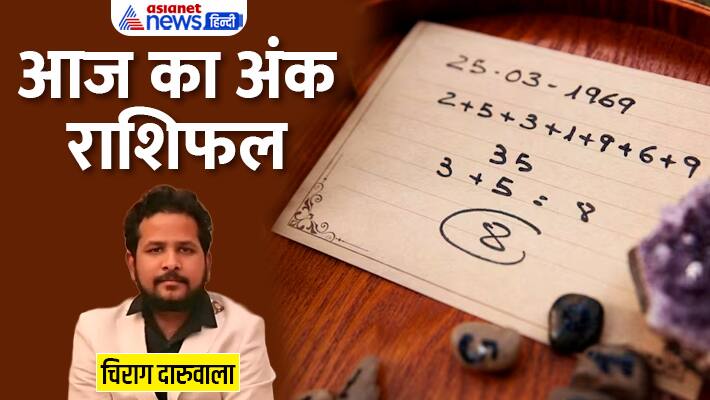 asianet
news हिन्दी
आज का अंक
राशिफल
चिराग दारुवाला
25-03-1969
2+5+3+1+9+6+9
35
3+5=8
8